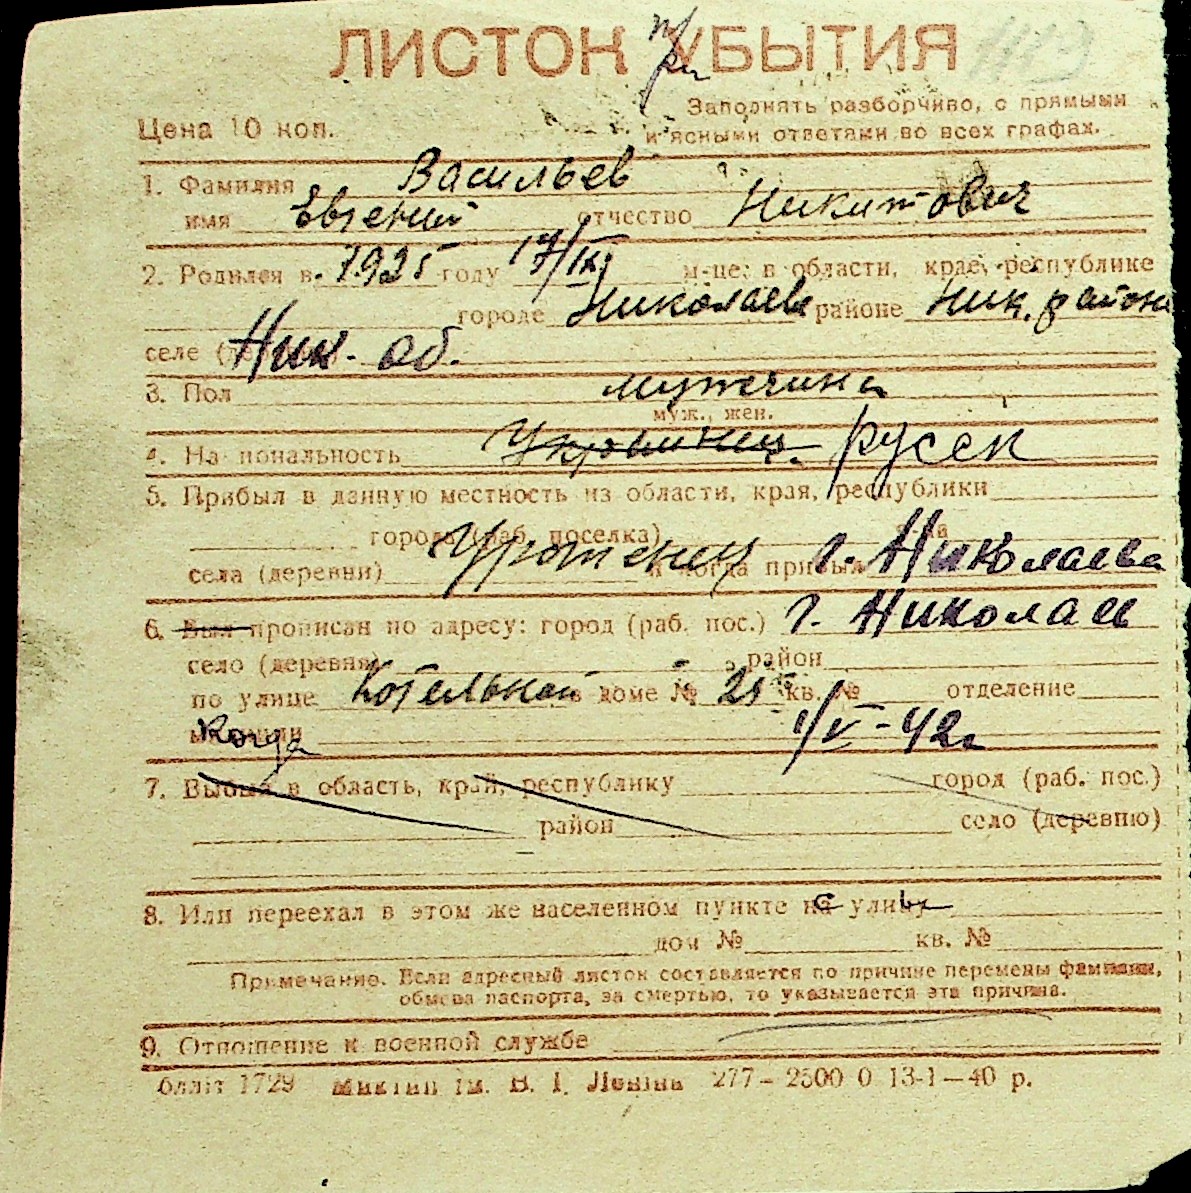 ЛИСТОК УБЫТИЯ
при
Заполнять разборчиво, с прямыми
Цена 10 коп.
и ясными ответами во всех графах.
1. Фамилия Васильев
имя Евгений отчество Никитович
2. Родился в 1925 году 17/IX м-це, в области, крае, республике
городе Николаеве районе Ник. района
селе Ник. об.
3. Пол мужчина
муж., жен.
4. Национальность Украинец. русск
5. Прибыл в данную местность из области, края, республики
города (раб. поселка)
села (деревни) Уроженец и когда прибыл г. Николаева
6. Был прописан по адресу: город (раб. пос.) г. Николаев
село (деревня) район
по улице Котельной в доме № 25 кв. № отделение
милиции Когда 1/V-42г
7. Выбыл в область, край, республику город (раб. пос.)
район село (деревню)
8. Или переехал в этом же населенном пункте с улицы
дом № кв. №
Примечание. Если адресный листок составляется по причине перемены фамилии,
обмена паспорта, за смертью, то указывается эта причина.
9. Отношение к военной службе
Облліт 1729 Миктип ім. В. І. Леніна 277—2500 0 13-1—40 р.